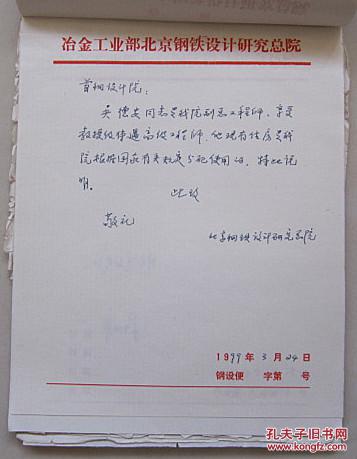 冶金工业部北京钢铁设计研究总院
首钢设计院：
吴德安同志是我院副总工程师、享受
教授级待遇高级工程师，他现有住房是我
院根据国家有关规定分配使用的，特此证
明。
此致
敬礼
北京钢铁设计研究总院
1999年3月24日
钢设便 字第 号
孔夫子旧书网